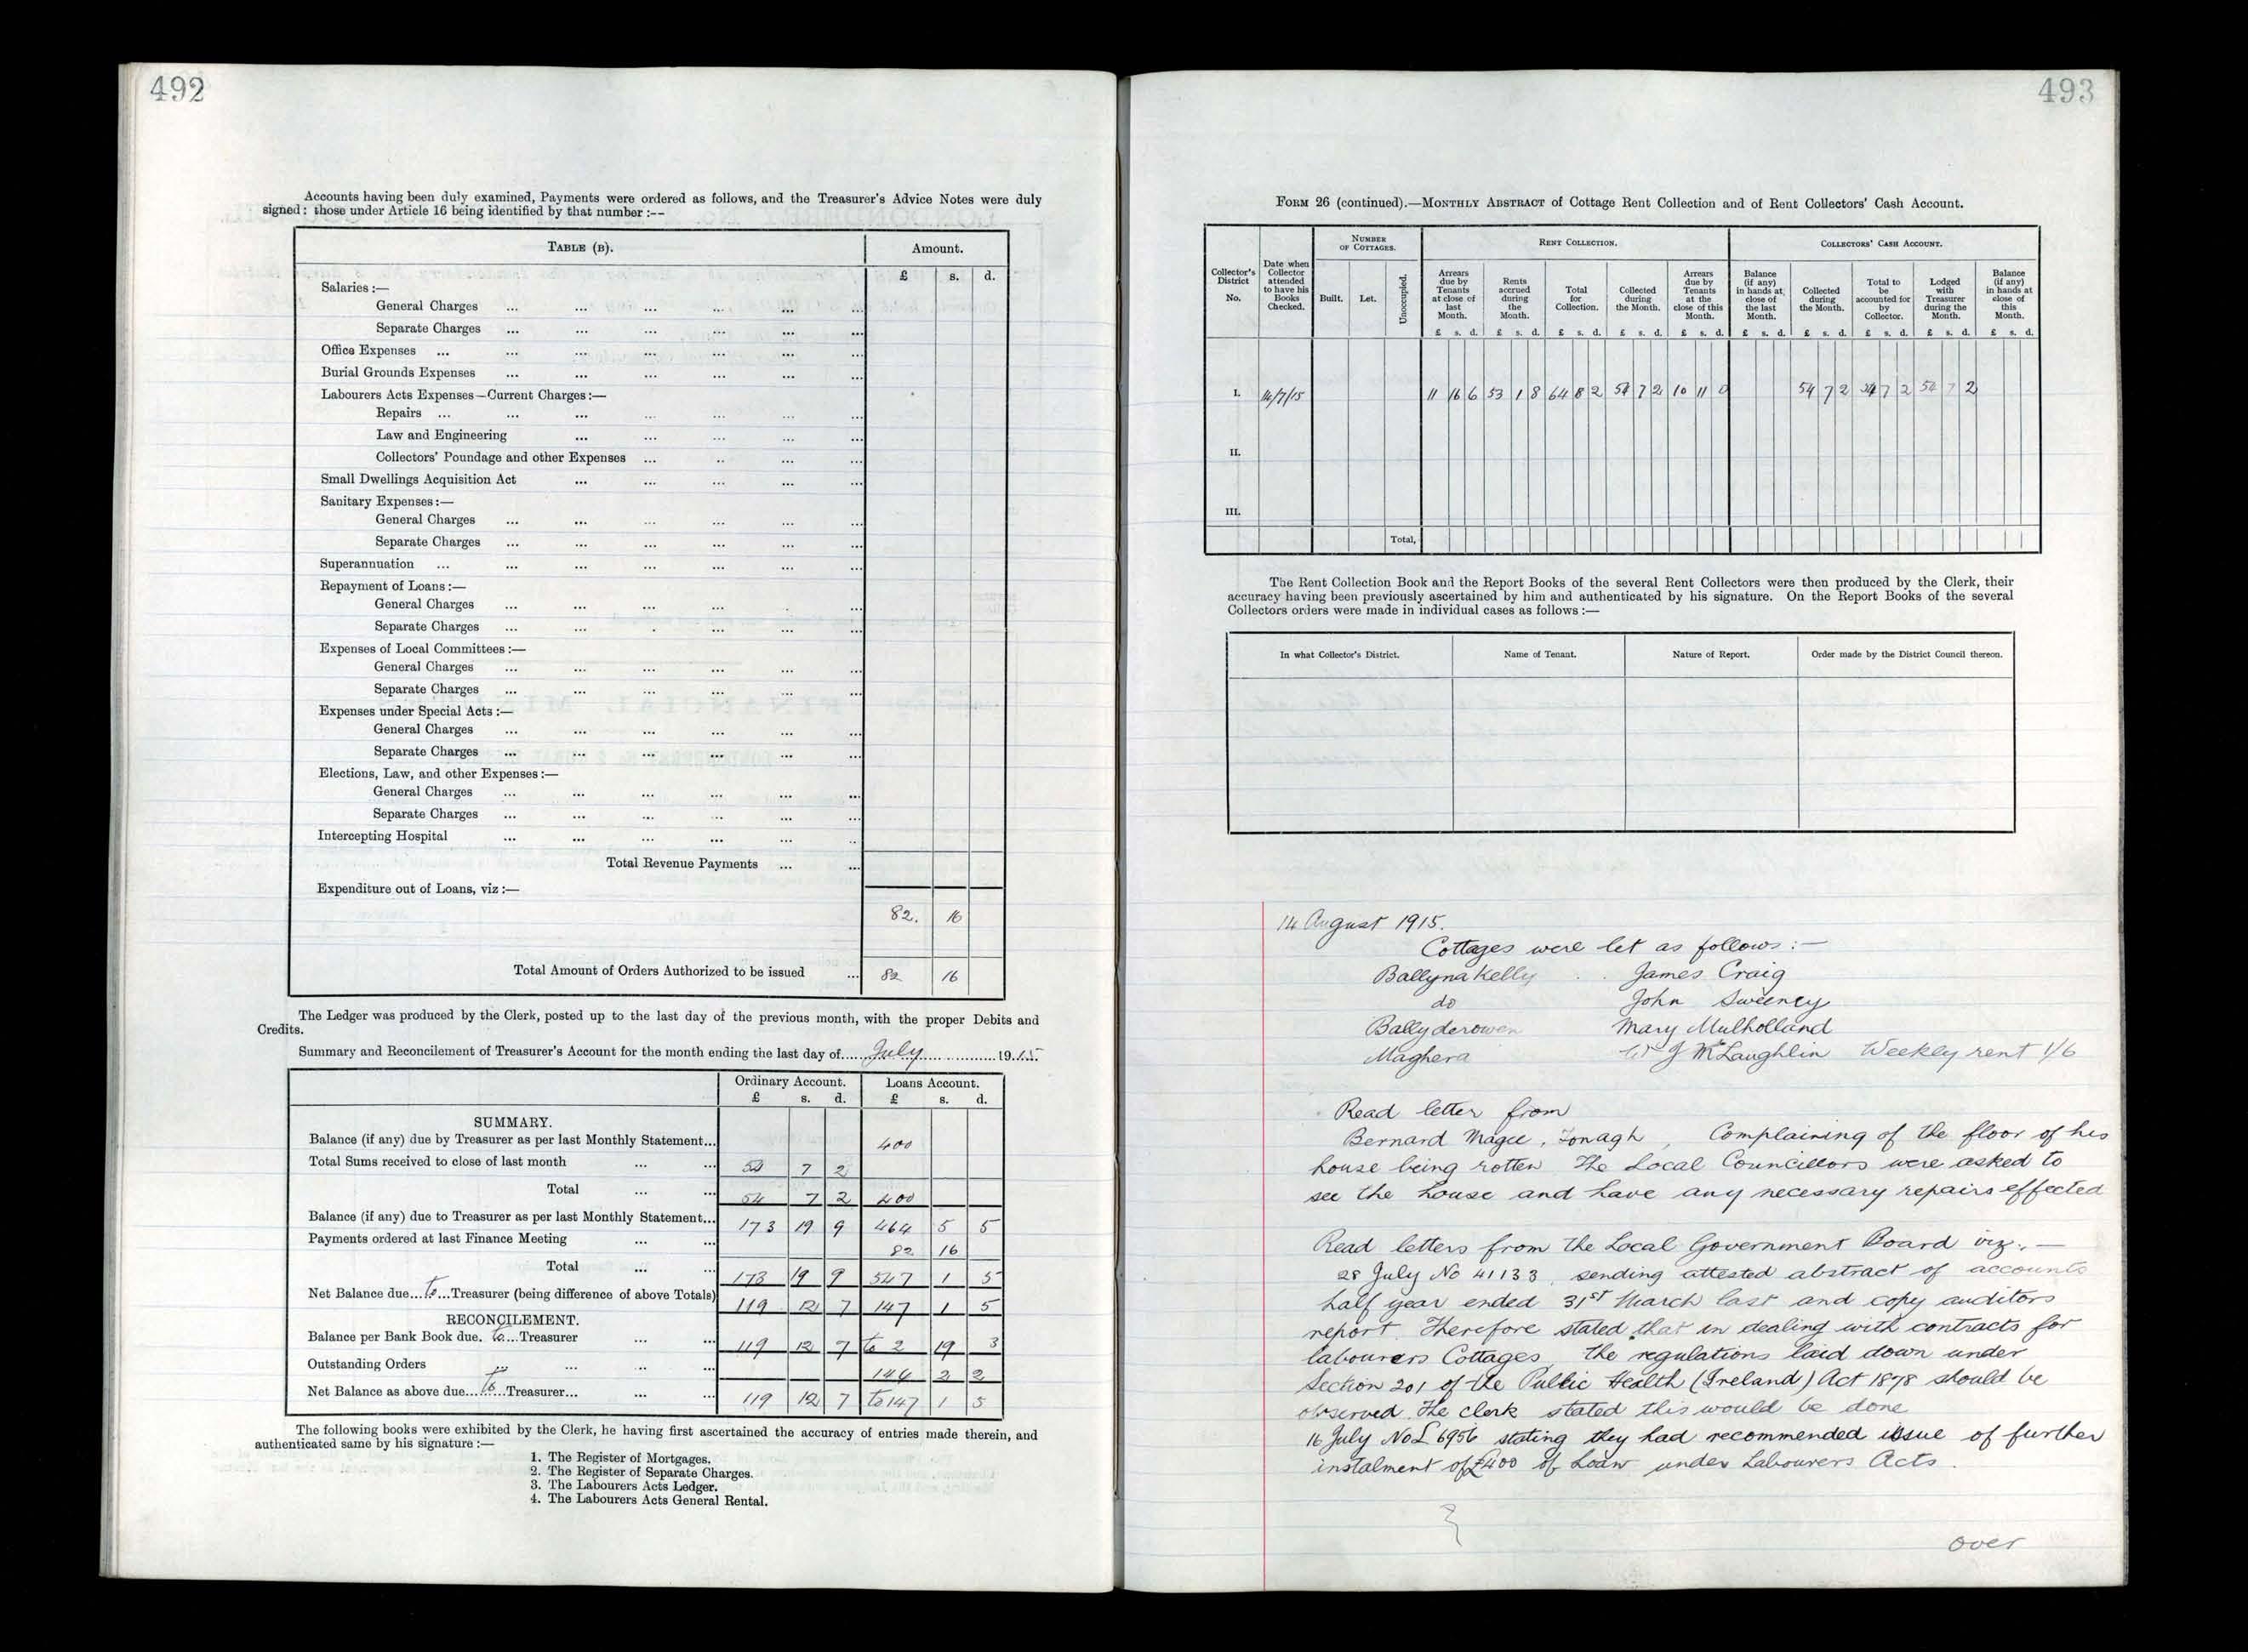 492
Accounts having been duly examined, Payments were ordered as follows, and the Treasurer's Advice Notes were duly
signed: those under Article 16 being identified by that number :--
TABLE (B).
Amount.
£ s. d.
Salaries :—
General Charges ... ... ... ... ... ...
Separate Charges ... ... ... ... ... ...
Office Expenses ... ... ... ... ... ...
Burial Grounds Expenses ... ... ... ... ...
Labourers Acts Expenses—Current Charges :—
Repairs ... ... ... ... ... ...
Law and Engineering ... ... ... ... ...
Collectors' Poundage and other Expenses ... ... ... ...
Small Dwellings Acquisition Act ... ... ... ... ...
Sanitary Expenses :—
General Charges ... ... ... ... ... ...
Separate Charges ... ... ... ... ... ...
Superannuation ... ... ... ... ... ...
Repayment of Loans :—
General Charges ... ... ... ... ... ...
Separate Charges ... ... ... ... ... ...
Expenses of Local Committees :—
General Charges ... ... ... ... ... ...
Separate Charges ... ... ... ... ... ...
Expenses under Special Acts :—
General Charges ... ... ... ... ... ...
Separate Charges ... ... ... ... ... ...
Elections, Law, and other Expenses :—
General Charges ... ... ... ... ... ...
Separate Charges ... ... ... ... ... ...
Intercepting Hospital ... ... ... ... ... ...
Total Revenue Payments ... ...
Expenditure out of Loans, viz :—
82. 16
Total Amount of Orders Authorized to be issued ... 82 16
The Ledger was produced by the Clerk, posted up to the last day of the previous month, with the proper Debits and
Credits.
Summary and Reconcilement of Treasurer's Account for the month ending the last day of......July..................1915
Ordinary Account. Loans Account.
£ s. d. £ s. d.
SUMMARY.
Balance (if any) due by Treasurer as per last Monthly Statement... 400
Total Sums received to close of last month ... ... 54 7 2
Total ... ... 54 7 2 400
Balance (if any) due to Treasurer as per last Monthly Statement... 173 19 9 464 5 5
Payments ordered at last Finance Meeting ... ... 82 16
Total ... ... 173 19 9 547 1 5
Net Balance due...to...Treasurer (being difference of above Totals) 119 12 7 147 1 5
RECONCILEMENT.
Balance per Bank Book due. to...Treasurer ... ... 119 12 7 to 2 19 3
Outstanding Orders ... ... ... ... 144 2 2
Net Balance as above due...to...Treasurer... ... ... 119 12 7 to 147 1 5
The following books were exhibited by the Clerk, he having first ascertained the accuracy of entries made therein, and
authenticated same by his signature :—
1. The Register of Mortgages.
2. The Register of Separate Charges.
3. The Labourers Acts Ledger.
4. The Labourers Acts General Rental.
493
FORM 26 (continued).—MONTHLY ABSTRACT of Cottage Rent Collection and of Rent Collectors' Cash Account.
Collector's District No.
Date when Collector attended to have his Books Checked.
NUMBER OF COTTAGES.
Built. Let. Unoccupied.
RENT COLLECTION.
Arrears due by Tenants at close of last Month.
Rents accrued during the Month.
Total for Collection.
Collected during the Month.
Arrears due by Tenants at the close of this Month.
COLLECTORS' CASH ACCOUNT.
Balance (if any) in hands at close of the last Month.
Collected during the Month.
Total to be accounted for by Collector.
Lodged with Treasurer during the Month.
Balance (if any) in hands at close of this Month.
£ s. d. £ s. d. £ s. d. £ s. d. £ s. d. £ s. d. £ s. d. £ s. d. £ s. d. £ s. d.
I. 14/7/15 11 16 6 53 1 8 64 8 2 54 7 2 10 11 0 54 7 2 54 7 2 54 7 2
II.
III.
Total,
The Rent Collection Book and the Report Books of the several Rent Collectors were then produced by the Clerk, their
accuracy having been previously ascertained by him and authenticated by his signature. On the Report Books of the several
Collectors orders were made in individual cases as follows :—
In what Collector's District. Name of Tenant. Nature of Report. Order made by the District Council thereon.
14 August 1915.
Cottages were let as follows :—
Ballynakelly . . James Craig
do John Sweeney
Ballyderowen Mary Mulholland
Maghera Wm J McLaughlin Weekly rent 1/6
Read letter from
Bernard Magee, Tonagh, Complaining of the floor of his
house being rotten The Local Councillors were asked to
see the house and have any necessary repairs effected
Read letters from the Local Government Board viz:—
28 July No 41133, sending attested abstract of accounts
half year ended 31st March last and copy auditors
report. Therefore stated that in dealing with contracts for
labourers Cottages, the regulations laid down under
Section 201 of the Public Health (Ireland) Act 1878 should be
observed. The clerk stated this would be done
16 July No L 6956 stating they had recommended issue of further
instalment of £400 of Loan under Labourers Acts.
over